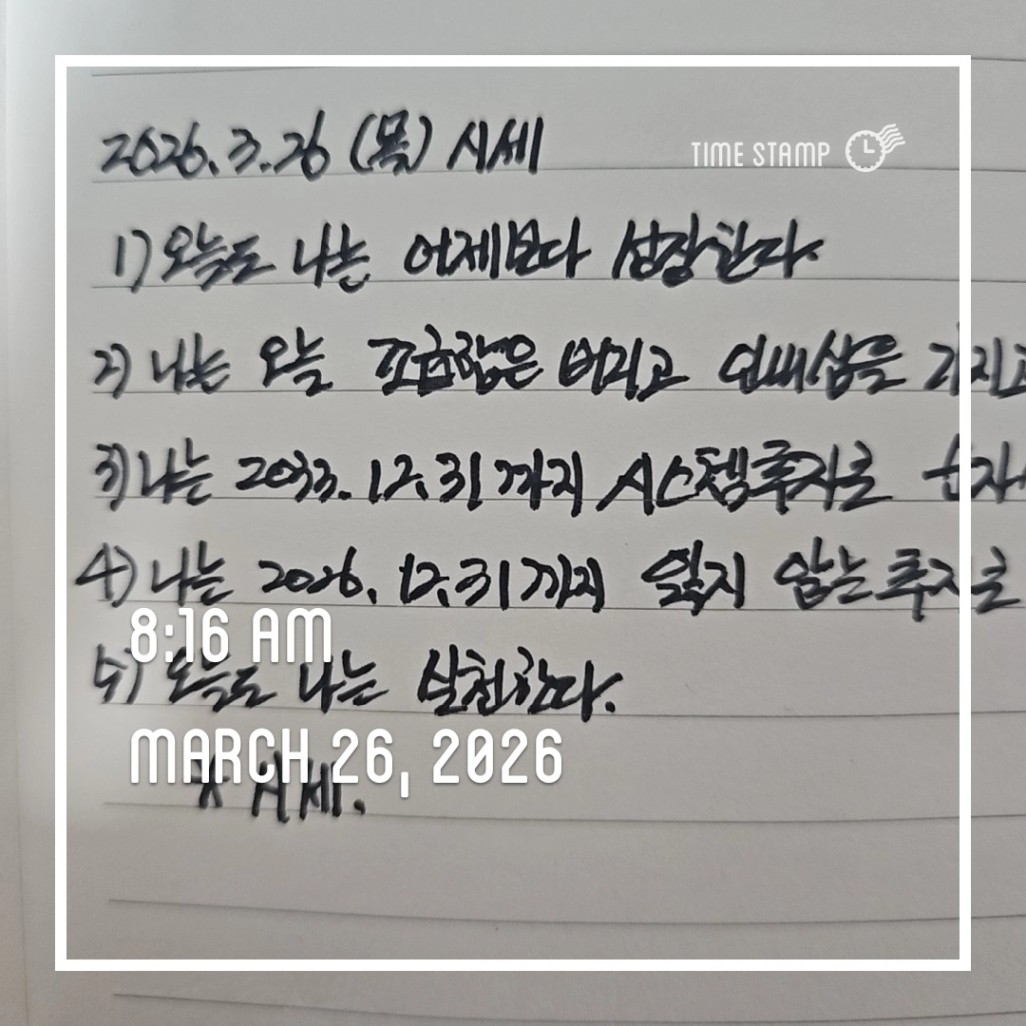 2026.3.26 (목) 시세
TIME STAMP
1) 오늘도 나는 어제보다 성장한다.
2) 나는 오늘 조급함은 버리고 인내심을 가지고
3) 나는 2033.12.31까지 시스템투자로
4) 나는 2026.12.31까지 잃지 않는 투자로
8:16 AM
5) 오늘도 나는 실천한다.
MARCH 26, 2026
* 시세.